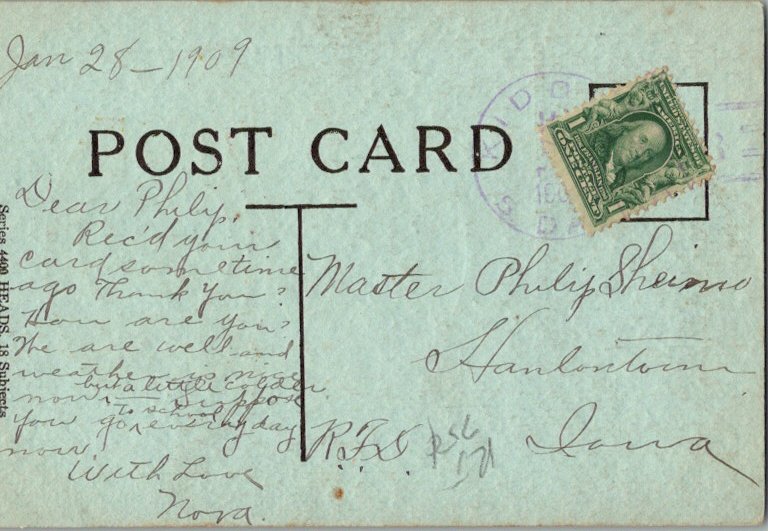 Jan 28 - 1909
POST CARD
Dear Philip,
Rec'd your
card sometime
ago Thank you.
How are you?
We are well and
weather is nice
but a little colder
now. Suppose
to school
you go every day
now.
With Love
Nora.
Master Philip Sheimo
Hanlontown
Iowa
R.F.D.
Series 4400 HEADS. 18 Subjects